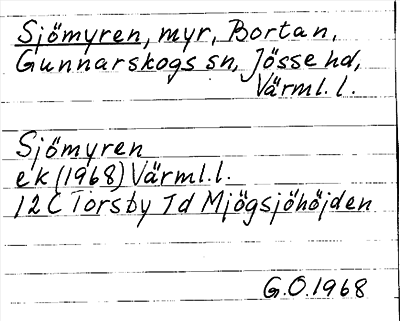 Sjömyren, myr, Bortan,
Gunnarskogs sn, Jösse hd,
Värml. l.
Sjömyren
ek (1968) Värml. l.
12 C Torsby 7d Mjögsjöhöjden
G.O. 1968